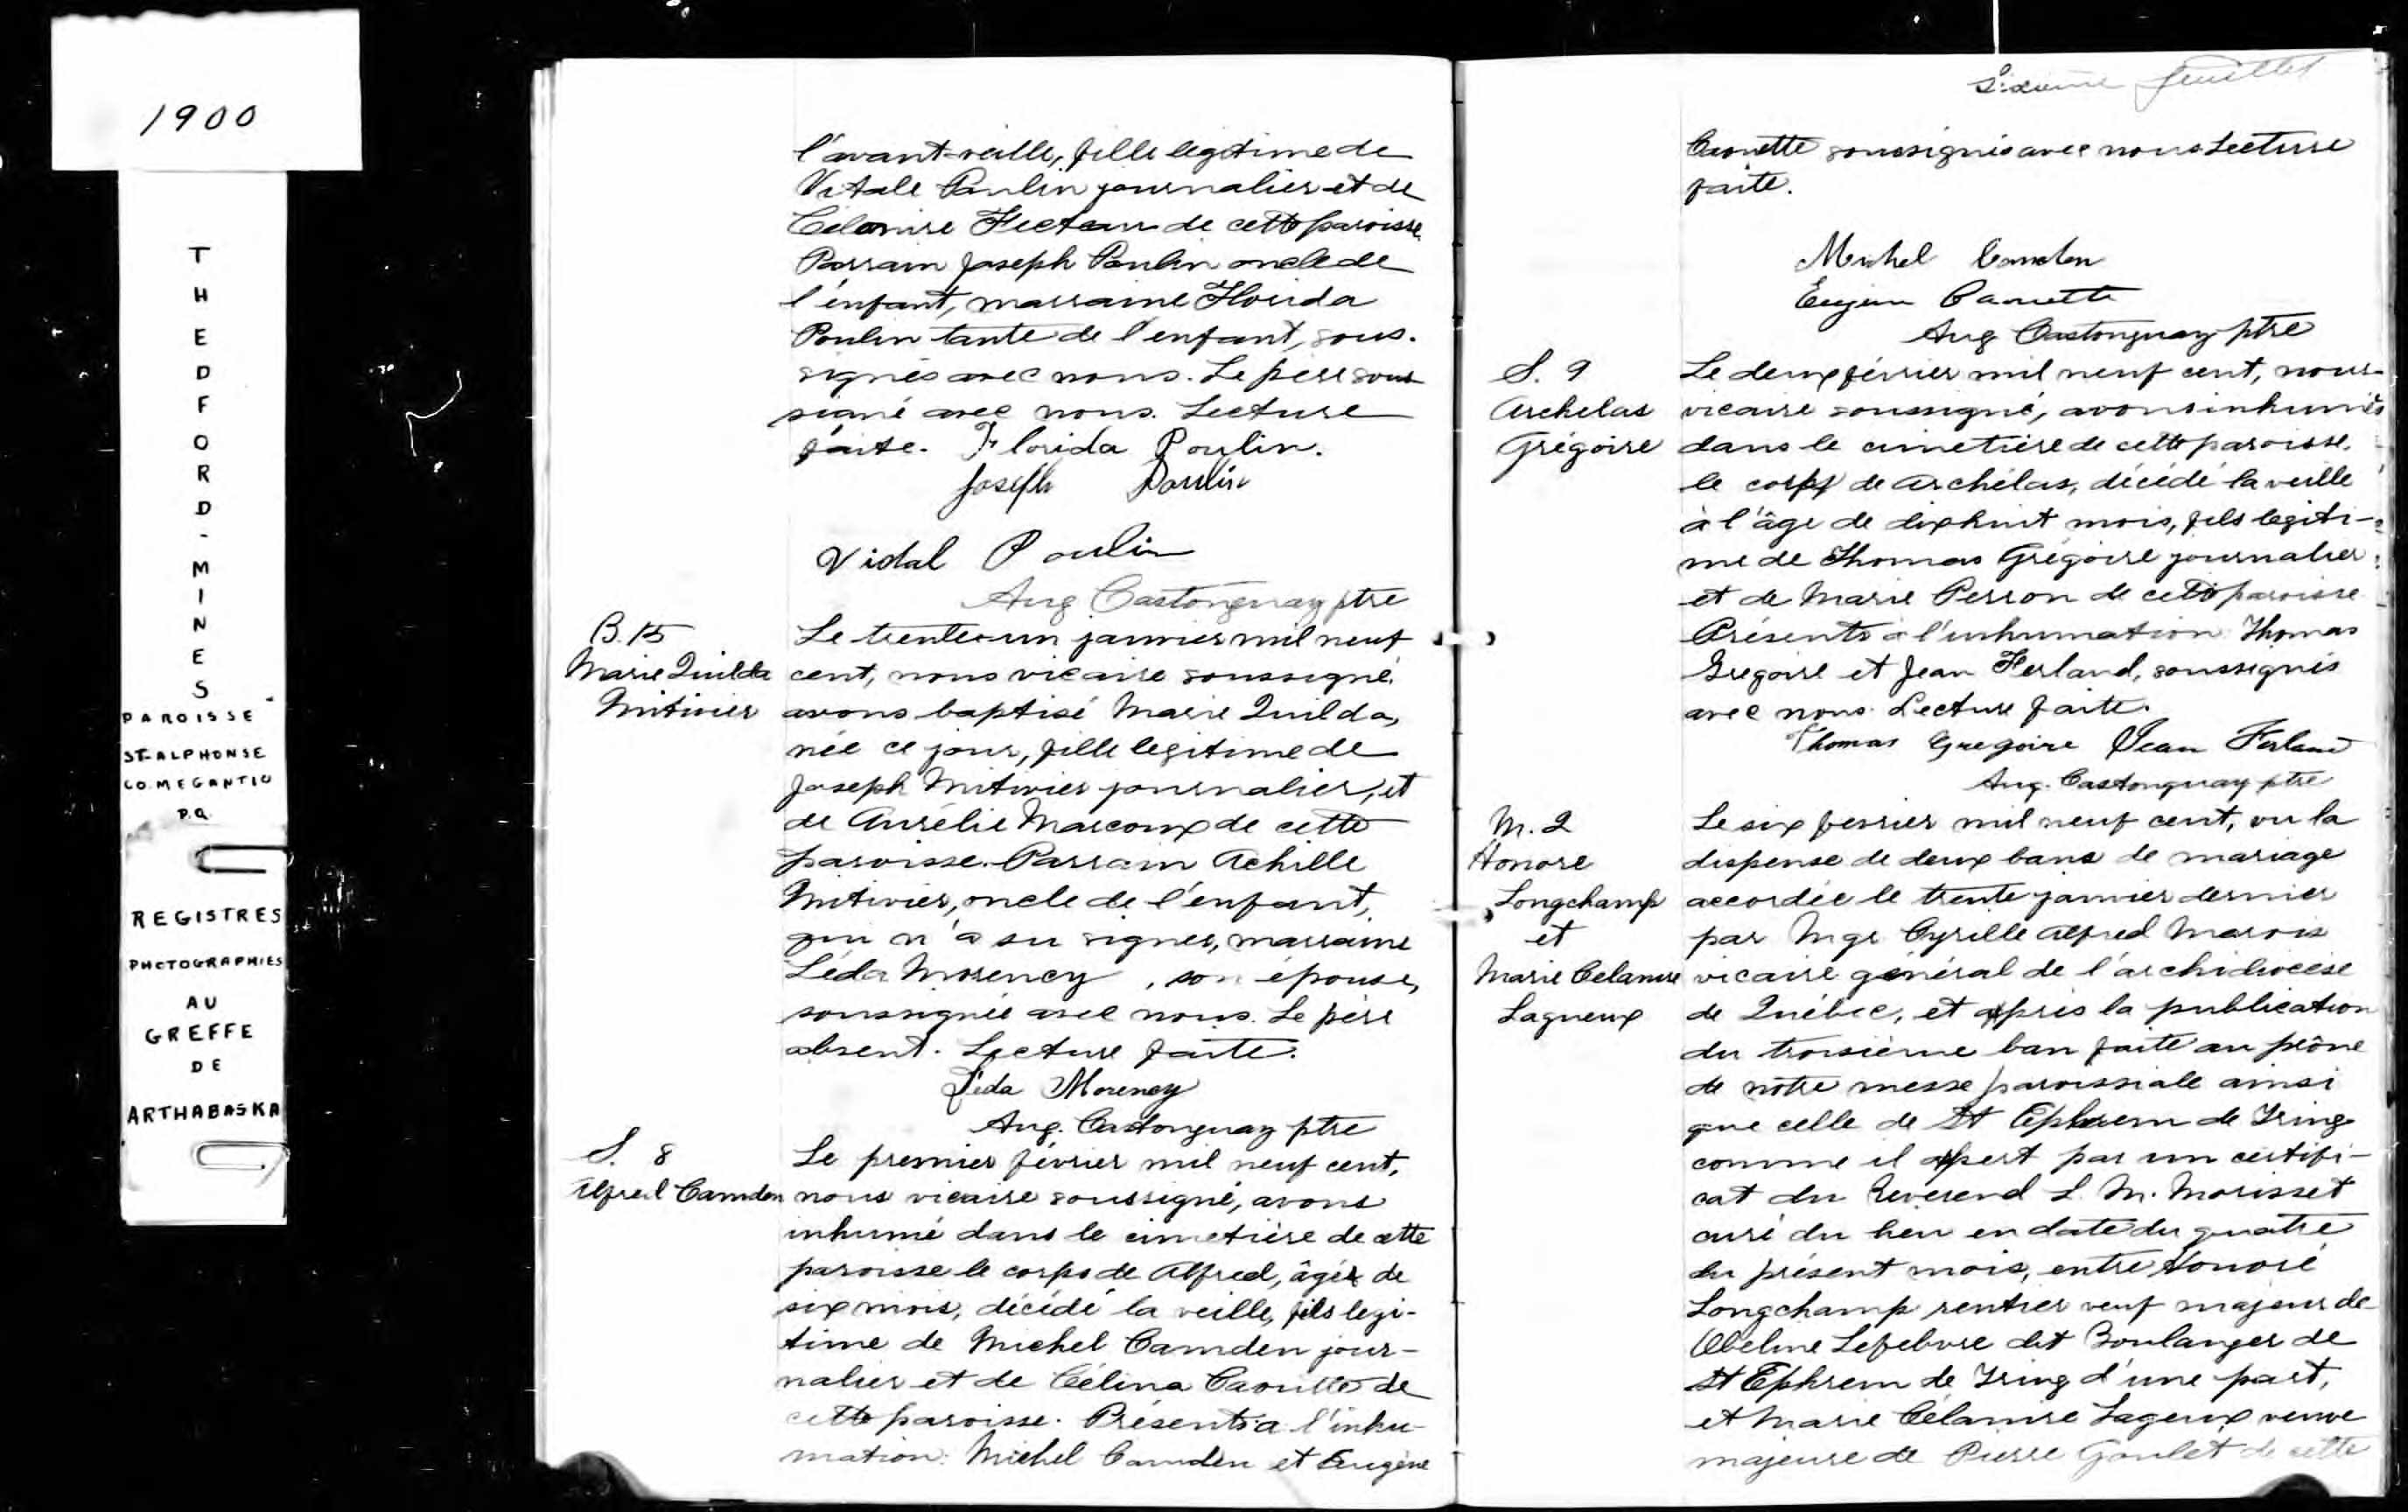 1900
THEDFORD-MINES
PAROISSE
ST-ALPHONSE
CO. MEGANTIC
P.Q.
REGISTRES
PHOTOGRAPHIES
AU
GREFFE
DE
ARTHABASKA
l'avant-veille, fille legitime de
Vitale Poulin journalier et de
Célanire Fecteau de cette paroisse.
Parrain Joseph Poulin oncle de
l'enfant, marraine Florida
Poulin tante de l'enfant, sous-
signés avec nous. Le père sous
signé avec nous. Lecture
faite. Florida Poulin.
Joseph Poulin
Vidal Poulin
Aug Castonguay ptre
B. 15
Marie Quilda
Mitivier
Le trente-un janvier mil neuf
cent, nous vicaire soussigné,
avons baptisé Marie Quilda,
née ce jour, fille legitime de
Joseph Mitivier journalier, et
de Aurélie Marcoux de cette
paroisse. Parrain Achille
Mitivier, oncle de l'enfant,
qui n'a su signer, marraine
Léda Morency, son épouse,
soussignée avec nous. Le père
absent. Lecture faite.
Léda Morency
Aug. Castonguay ptre
S. 8
Alfred Camden
Le premier février mil neuf cent,
nous vicaire soussigné, avons
inhumé dans le cimetière de cette
paroisse le corps de Alfred, âgé de
six mois, décédé la veille, fils legi-
time de Michel Camden jour-
nalier et de Célina Caouette de
cette paroisse. Présents à l'inhu-
mation: Michel Camden et Eugène
Sixième feuillet
Caouette soussignés avec nous Lecture
faite.
Michel Camden
Eugène Caouette
Aug Castonguay ptre
S. 9
Archelas
Grégoire
Le deux février mil neuf cent, nous
vicaire soussigné, avons inhumés
dans le cimetière de cette paroisse.
le corps de Archélas, décédé la veille
à l'âge de dix huit mois, fils legiti-
me de Thomas Grégoire journalier
et de Marie Perron de cette paroisse
Présents à l'inhumation: Thomas
Gregoire et Jean Ferland, soussignés
avec nous. Lecture faite.
Thomas Gregoire Jean Ferland
Aug. Castonguay ptre
M. 2
Honore
Longchamp
et
Marie Celanire
Lagueux
Le six fevrier mil neuf cent, vu la
dispense de deux bans de mariage
accordée le trente janvier dernier
par Mgr Cyrille Alfred Marois
vicaire général de l'archidiocèse
de Québec, et après la publication
du troisième ban faite au prône
de notre messe paroissiale ainsi
que celle de St Ephrem de Tring
comme il appert par un certifi-
cat du Reverend L. M. Morisset
curé du lieu en date du quatre
du présent mois, entre Honoré
Longchamp rentier veuf majeur de
Obeline Lefebvre dit Boulanger de
St Ephrem de Tring d'une part,
et Marie Célanire Lageux veuve
majeure de Pierre Goulet de cette